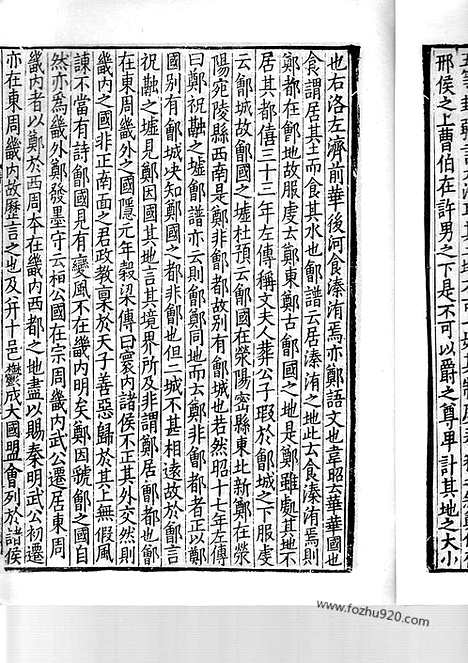 邢侯之上曹伯在許男之下是不可以爵之尊卑計其地之大小
也右洛左濟前華後河食溱洧焉亦鄭語文也韋昭云華華國也
食謂居其土而食其水也鄶譜云居溱洧之地此云食溱洧焉則
鄭都在鄶地故服虔云鄭東鄭古鄶國之地是鄭雖處其地不
居其都僖三十三年左傳稱文夫人葬公子瑕於鄶城之下服虔
云鄶城故鄶國之墟杜預云鄶國在滎陽密縣東北新鄭在滎
陽宛陵縣西南是鄭非鄶都故別有鄶城也若然昭十七年左傳
曰鄭祝融之墟鄶譜亦云則鄶鄭同地而云鄭非鄶都者正以鄭
國別有鄶城決知鄭國之都非鄶也但二城不甚相遠故於鄶言
祝融之墟見鄭因國其地言其境界所及非謂鄭居鄶都也鄶
在東周畿外之國隱元年榖梁傳曰寰內諸侯不正其外交然則
畿內之國非正南面之君政教稟於天子善惡歸於其上無假風
諫不當有詩鄶國見有變風不在畿內明矣鄭因虢鄶之國自
然亦為畿外鄭發墨守云桓公國在宗周畿內武公遷居東周
畿內者以鄭於西周本在畿內西都之地盡以賜秦明武公初遷
亦在東周畿內故歷言之也及并十邑鬱成大國盟會列於諸侯
www.fozhu920.com